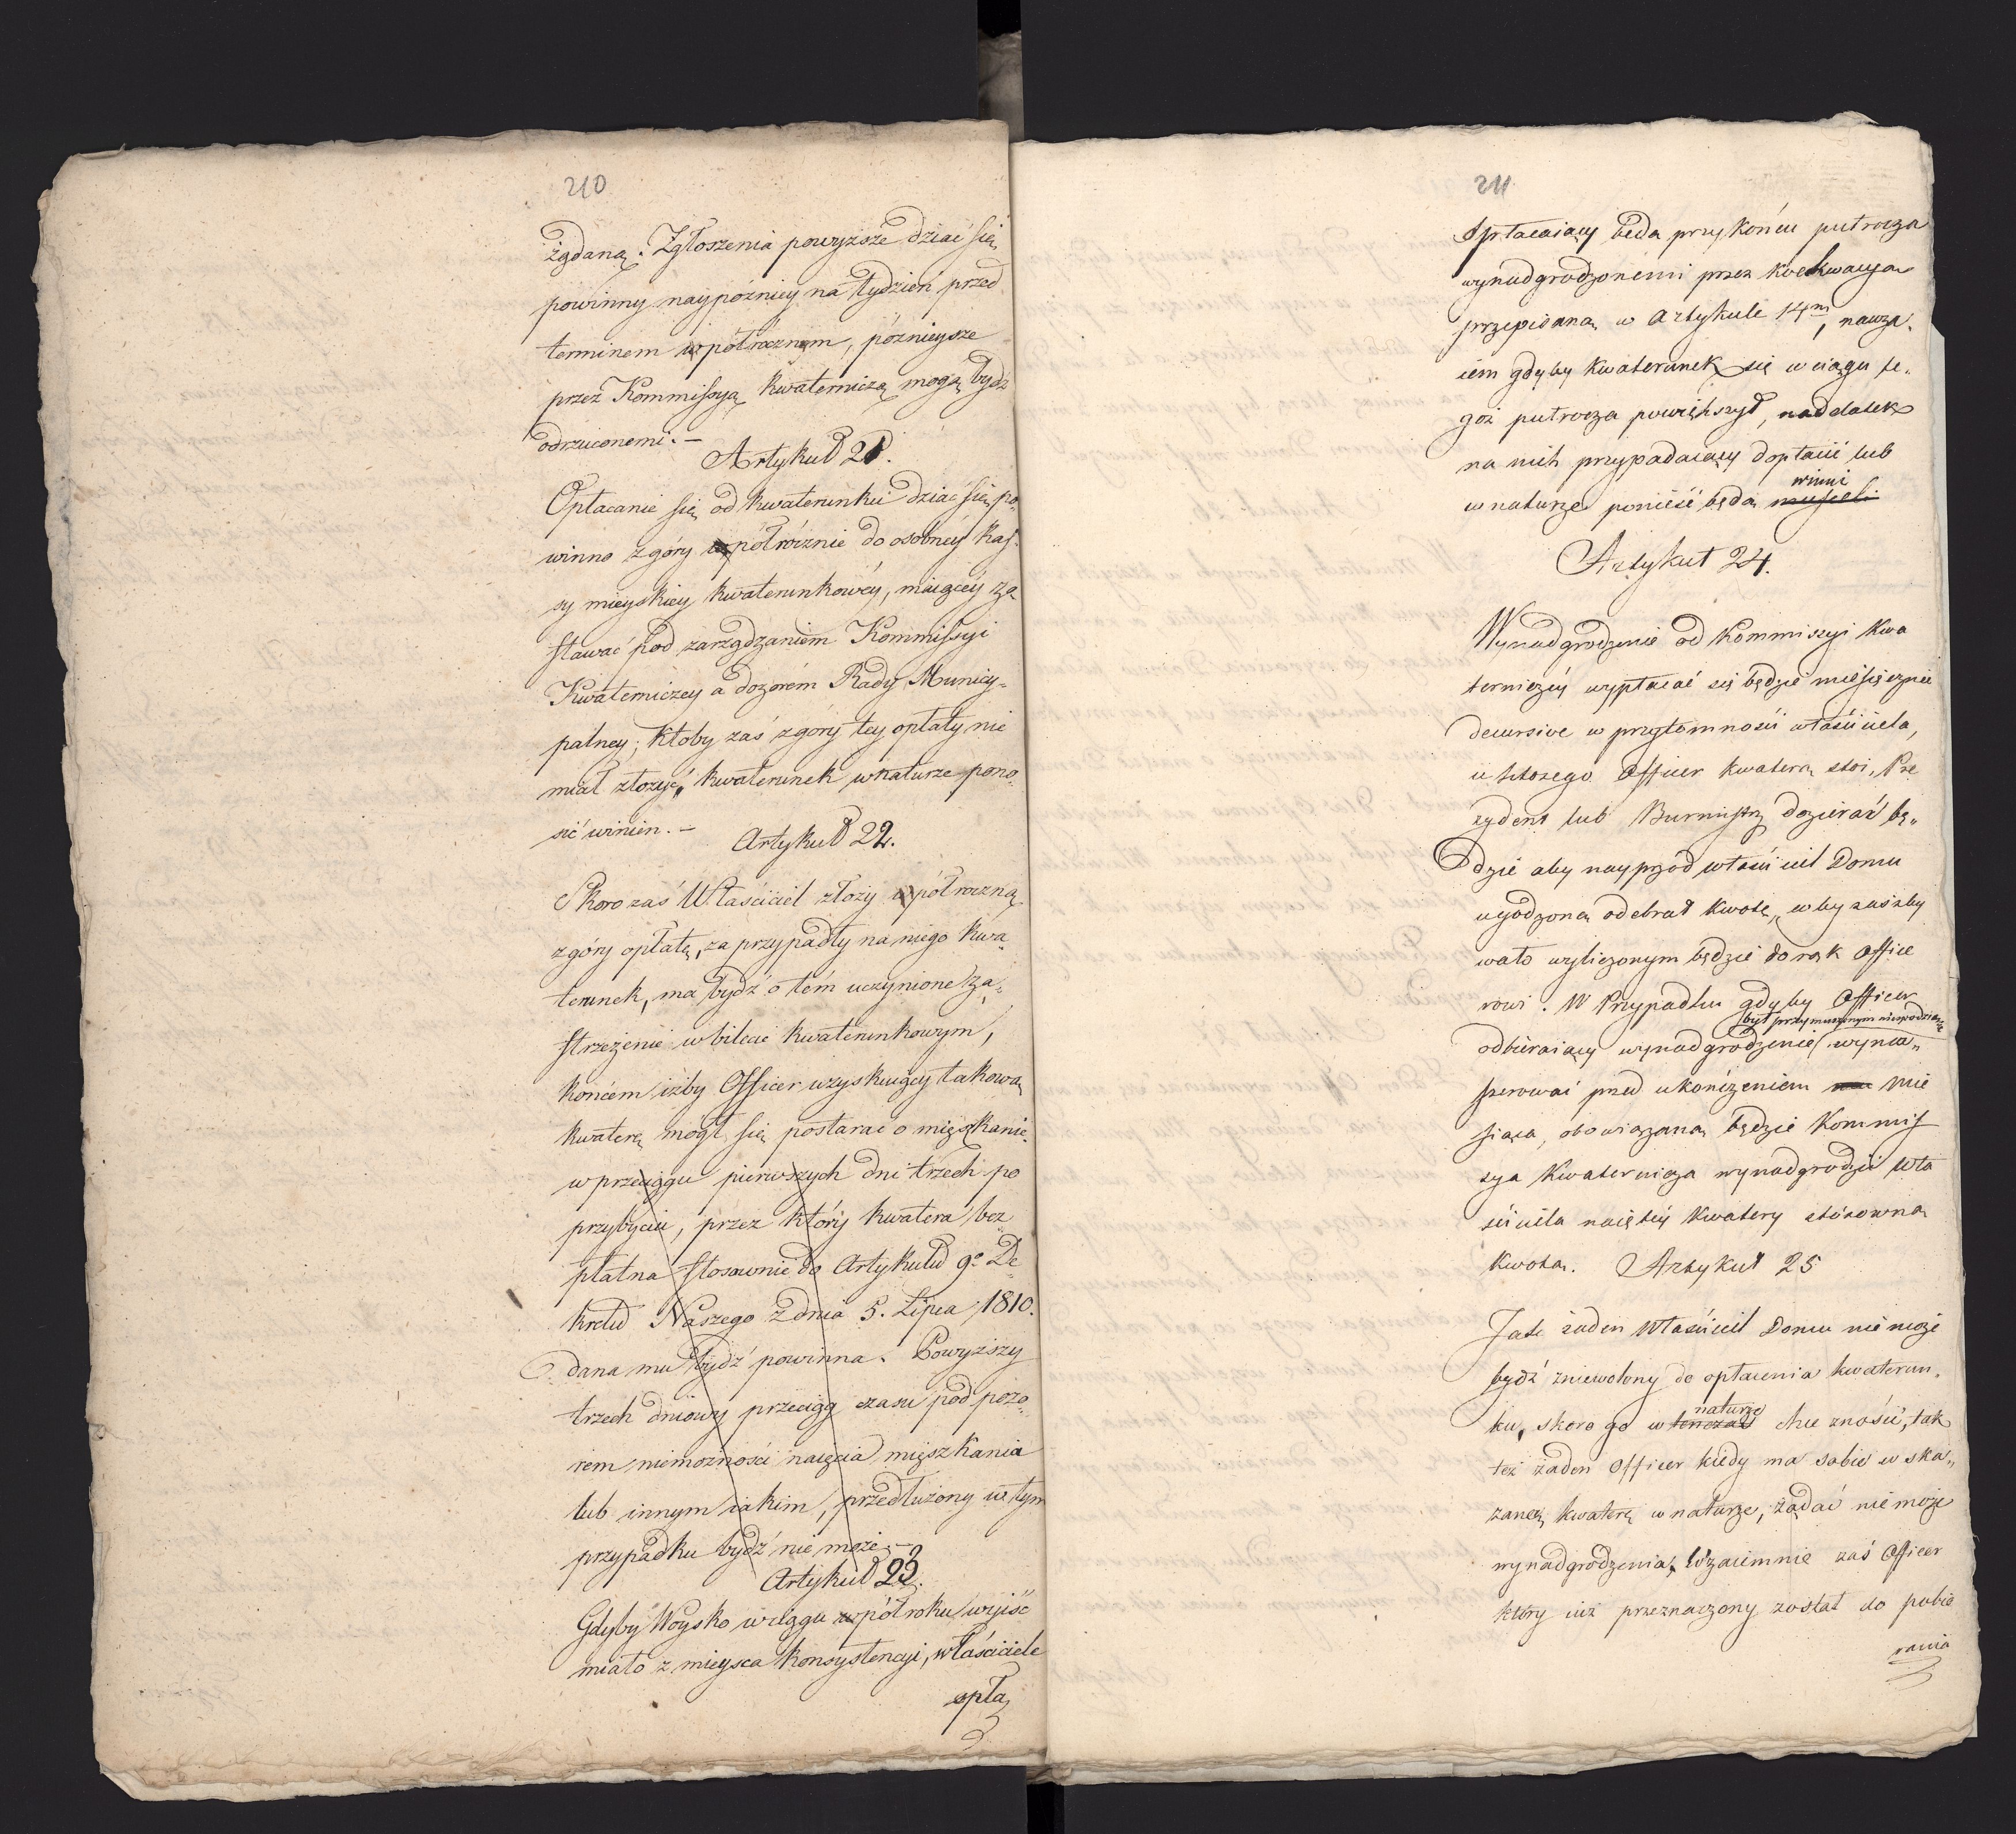 210
żądaną. Zgłoszenia powyższe dziać się
powinny naypóźniey na tydzień przed
terminem półrocznem, późnieysze
przez Kommissyą kwaterniczą mogą bydź
odrzuconemi. –
Artykuł 21.
Opłacanie się od kwaterunku dziać się po-
winno z góry półrócznie do osobnéy Kas-
sy mieyskiey kwaterunkowéy, maiącéy zo-
stawać pod zarządzaniem Kommissyi
Kwaterniczey a dozorem Rady Municy-
palney; ktoby zaś z góry tey opłaty nie
miał złożyć, kwaterunek w naturze pono-
sić winien. –
Artykuł 22.
Skoro zaś Właściciel złoży półroczną
z góry opłatę, za przypadły na niego kwa-
terunek, ma bydź o tém uczynione za-
strzeżenie w bilecie kwaterunkowym,
końcem iżby Officer uzyskuiący takową
kwaterę mógł się postarać o mięszkanie
w przeciągu pierwszych dni trzech po
przybyciu, przez który kwatera bez
płatna stosownie do Artykułu 9o De-
kretu Naszego z dnia 5. Lipca 1810.
dana mu bydź powinna. Powyższy
trzech dniowy przeciąg czasu pod pozo-
rem niemożności naięcia mięszkania
lub innym iakim, przedłużony w tym
przypadku bydź nie może. –
Artykuł 23.
Gdyby Woysko w ciągu półroku wyiść
miało z mieysca konsystencyi, właściciele
opła
211
Opłacaiący będą przy końcu pułrocza
wynadgrodzonemi przez koekwacyą
przepisaną w Artykule 14m, nawza-
iem gdyby kwaterunek się w ciągu te-
goż pułrocza powiększył, naddatek
na nich przypadaiący dopłacić lub
winni
w naturze ponieść będą musieli
Artykuł 24.
Wynadgrodzenie od Kommiszyi Kwa
terniczéy wypłacać się będzie miesięcznie
decursive w przytomności właściciela,
u którego Officer kwaterą stoi, Pre
zydent lub Burmistrz dozierać bę-
dzie aby nayprzód właściciel Domu
ugodzoną odebrał kwotę, wby zaś zby
wało wyliczonym będzie do rąk Office
rowi. W Przypadku gdyby Officer
był przymuszonym niespodzianie
odbieraiący wynadgrodzenie wyma-
szerować przed ukończeniem mie
siąca, obowiązaną będzie Kommis
sya Kwaternicza wynadgrodzić Wła
ściciela naiętéy Kwatery stósowną
kwotą. Artykuł 25
Jak żaden Właściciel Domu nie może
bydź zniewolony do opłacenia kwaterun-
naturze
ku, skoro go w tenczas chce znosić, tak
też żaden Officer kiedy ma sobie wska-
zaną kwaterę w naturze, żądać nie może
wynadgrodzenia, Wzaiemnie zaś Officer
który iuż przeznaczony został do pobie
rania